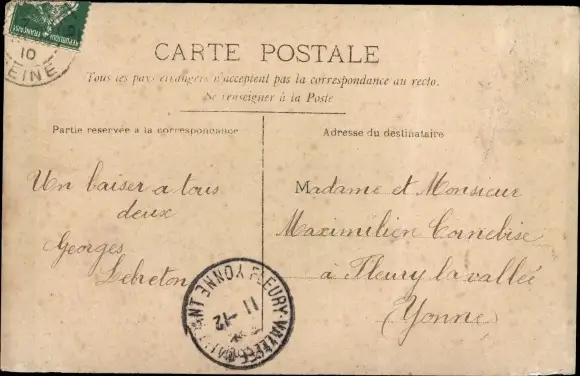 RÉPUBLIQUE FRANÇAISE
10
SEINE
CARTE POSTALE
Tous les pays étrangers n'acceptent pas la correspondance au recto.
Se renseigner à la Poste
Partie reservée a la correspondance
Adresse du destinataire
Un baiser a tous
deux
Georges
Lebreton
Madame et Monsieur
Maximilien Cornebise
à Fleury la vallée
(Yonne)
FLEURY-VALLEE
YONNE
11 -12